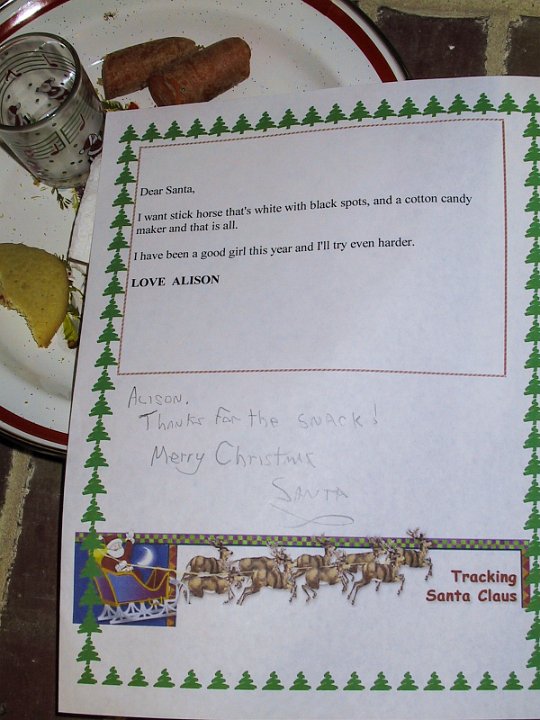 Dear Santa,
I want stick horse that's white with black spots, and a cotton candy
maker and that is all.
I have been a good girl this year and I'll try even harder.
LOVE ALISON
ALISON,
Thanks for the snack!
Merry Christmas
SANTA
Tracking
Santa Claus